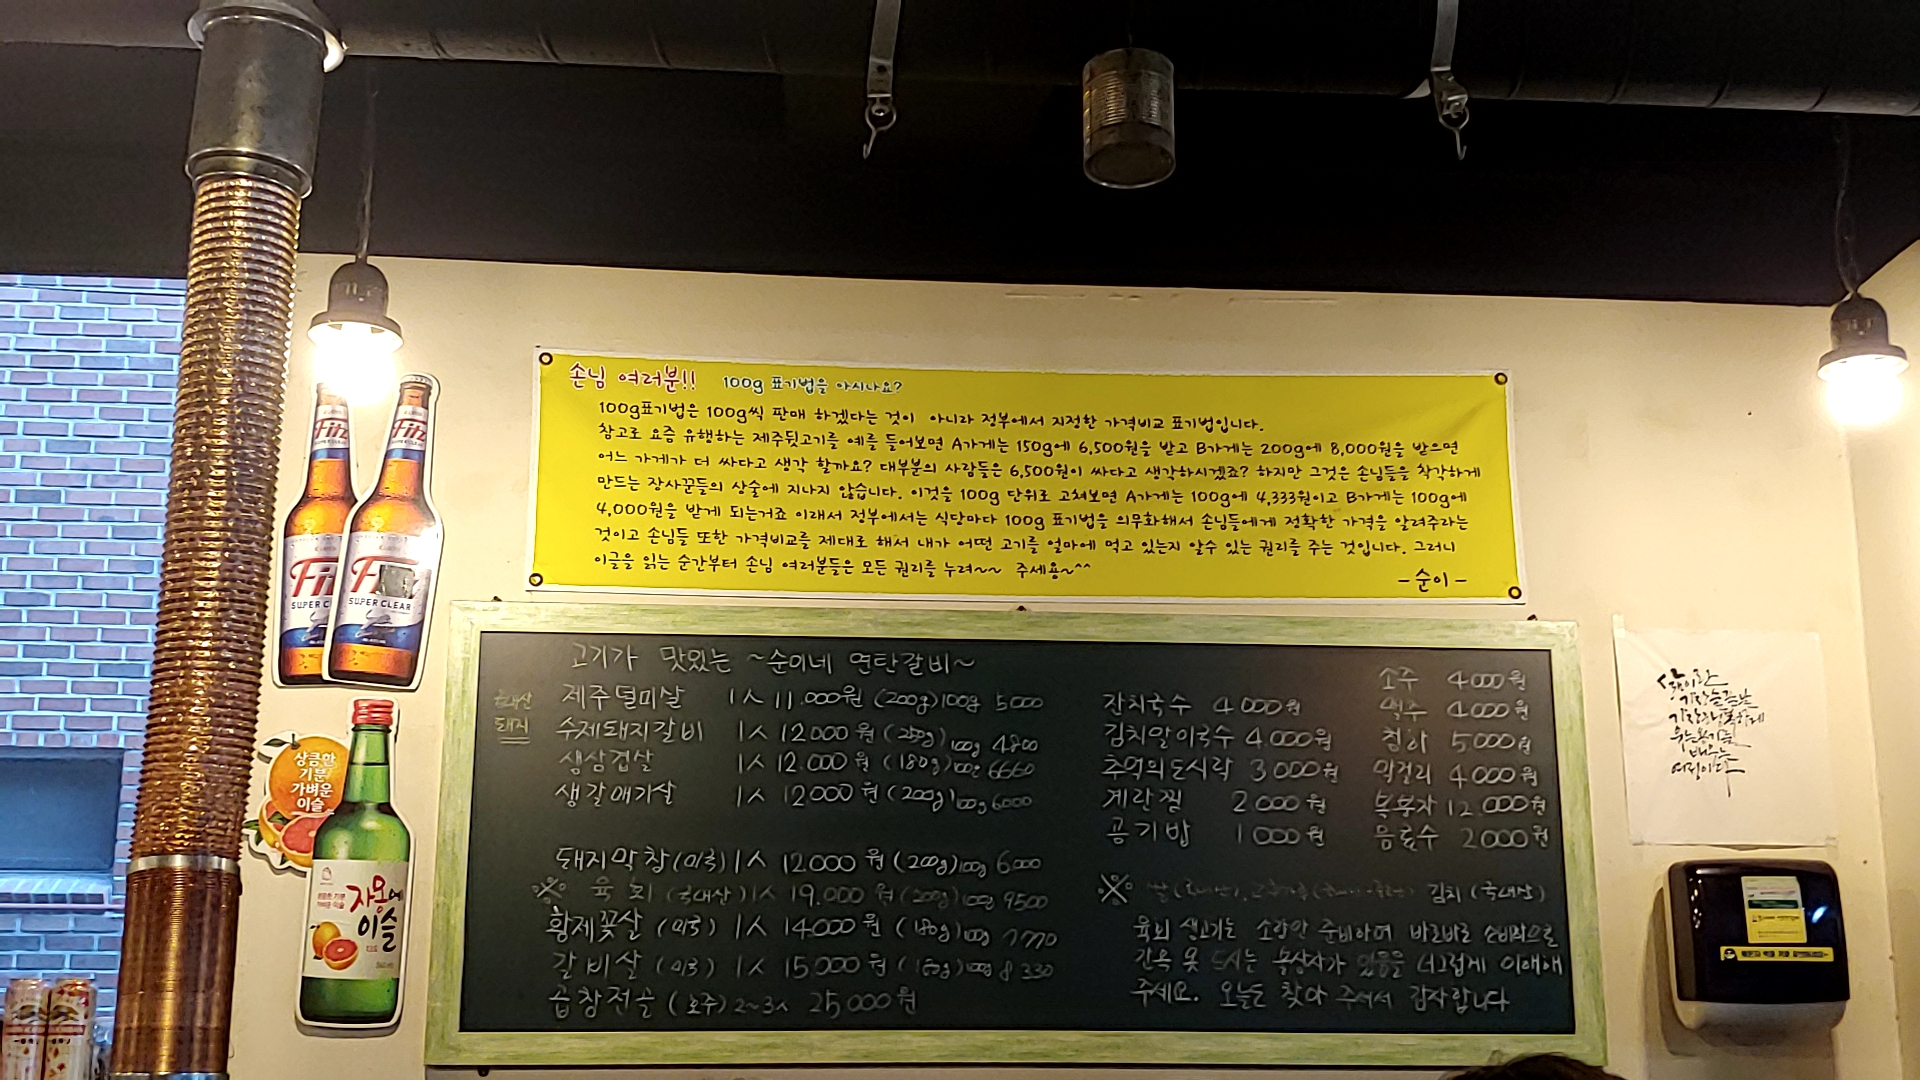 손님 여러분!! 100g 표기법을 아시나요?
100g표기법은 100g씩 판매 하겠다는 것이 아니라 정부에서 지정한 가격비교 표기법입니다.
참고로 요즘 유행하는 제주뒷고기를 예를 들어보면 A가게는 150g에 6,500원을 받고 B가게는 200g에 8,000원을 받으면
어느 가게가 더 싸다고 생각 할까요? 대부분의 사람들은 6,500원이 싸다고 생각하시겠죠? 하지만 그것은 손님들을 착각하게
만드는 장사꾼들의 상술에 지나지 않습니다. 이것을 100g 단위로 고쳐보면 A가게는 100g에 4,333원이고 B가게는 100g에
4,000원을 받게 되는거죠 이래서 정부에서는 식당마다 100g 표기법을 의무화해서 손님들에게 정확한 가격을 알려주라는
것이고 손님들 또한 가격비교를 제대로 해서 내가 어떤 고기를 얼마에 먹고 있는지 알수 있는 권리를 주는 것입니다. 그러니
이글을 읽는 순간부터 손님 여러분들은 모든 권리를 누려~~ 주세용~^^
- 순이 -
고기가 맛있는 ~순이네 연탄갈비~
국내산
돼지
제주덜미살 1人 11.000원 (200g) 100g 5000
수제돼지갈비 1人 12000원 (250g) 100g 4800
생삼겹살 1人 12.000원 (180g) 100g 6660
생갈매기살 1人 12000원 (200g) 100g 6000
돼지막창 (미국) 1人 12.000원 (200g) 100g 6000
※ 육회 (국내산) 1人 19.000원 (200g) 100g 9500
황제꽃살 (미국) 1人 14000원 (180g) 100g 7770
갈비살 (미국) 1人 15000원 (180g) 100g 8330
곱창전골 (호주) 2~3人 25000원
잔치국수 4000원
김치말이국수 4.000원
추억의도시락 3000원
계란찜 2000원
공기밥 1000원
소주 4000원
맥주 4000원
청하 5000원
막걸리 4000원
복분자 12.000원
음료수 2000원
※ 김치 (국내산)
육회 생고기는 소량만 준비하며 바로바로 소비되므로
간혹 못 드시는 불상사가 있음을 너그럽게 이해해
주세요. 오늘도 찾아 주셔서 감사합니다
Fitz
SUPER CLEAR
Fitz
SUPER CLEAR
상큼한
기분
가벼운
이슬
자몽에
이슬